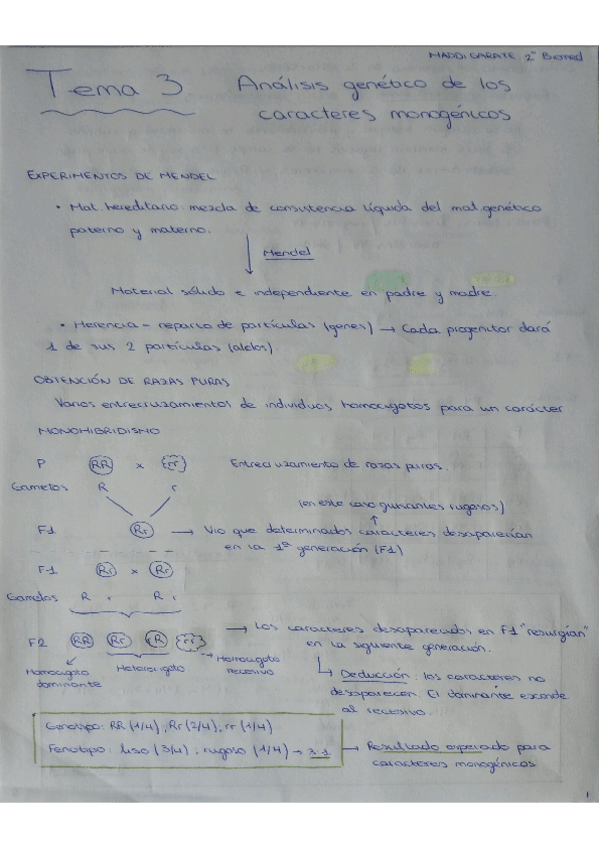 MADDI GARATE 2º Biomed
Tema 3 Análisis genético de los
caracteres monogénicos
EXPERIMENTOS DE MENDEL
• Mat. hereditario: mezcla de consistencia líquida del mat. genético
paterno y materno.
Mendel
Material sólido e independiente en padre y madre.
• Herencia = reparto de partículas (genes) → Cada progenitor dará
1 de sus 2 partículas (alelos).
OBTENCIÓN DE RAZAS PURAS
Varios entrecruzamientos de individuos homocigotos para un carácter
MONOHIBRIDISMO
P RR x rr Entrecruzamiento de razas puras.
Gametos R r
(en este caso guisantes rugosos)
F1 Rr → Vio que determinados caracteres desaparecían
en la 1ª generación (F1)
F1 Rr x Rr
Gametos R r R r
F2 RR Rr rR rr → Los caracteres desaparecidos en F1 "resurgían"
en la siguiente generación.
Homocigoto dominante Heterocigoto Homocigoto recesivo
Deducción: los caracteres no
desaparecen. El dominante esconde
al recesivo.
Genotipo: RR (1/4), Rr (2/4), rr (1/4)
Fenotipo: liso (3/4); rugoso (1/4) → 3:1 → Resultado esperado para
caracteres monogénicos
1